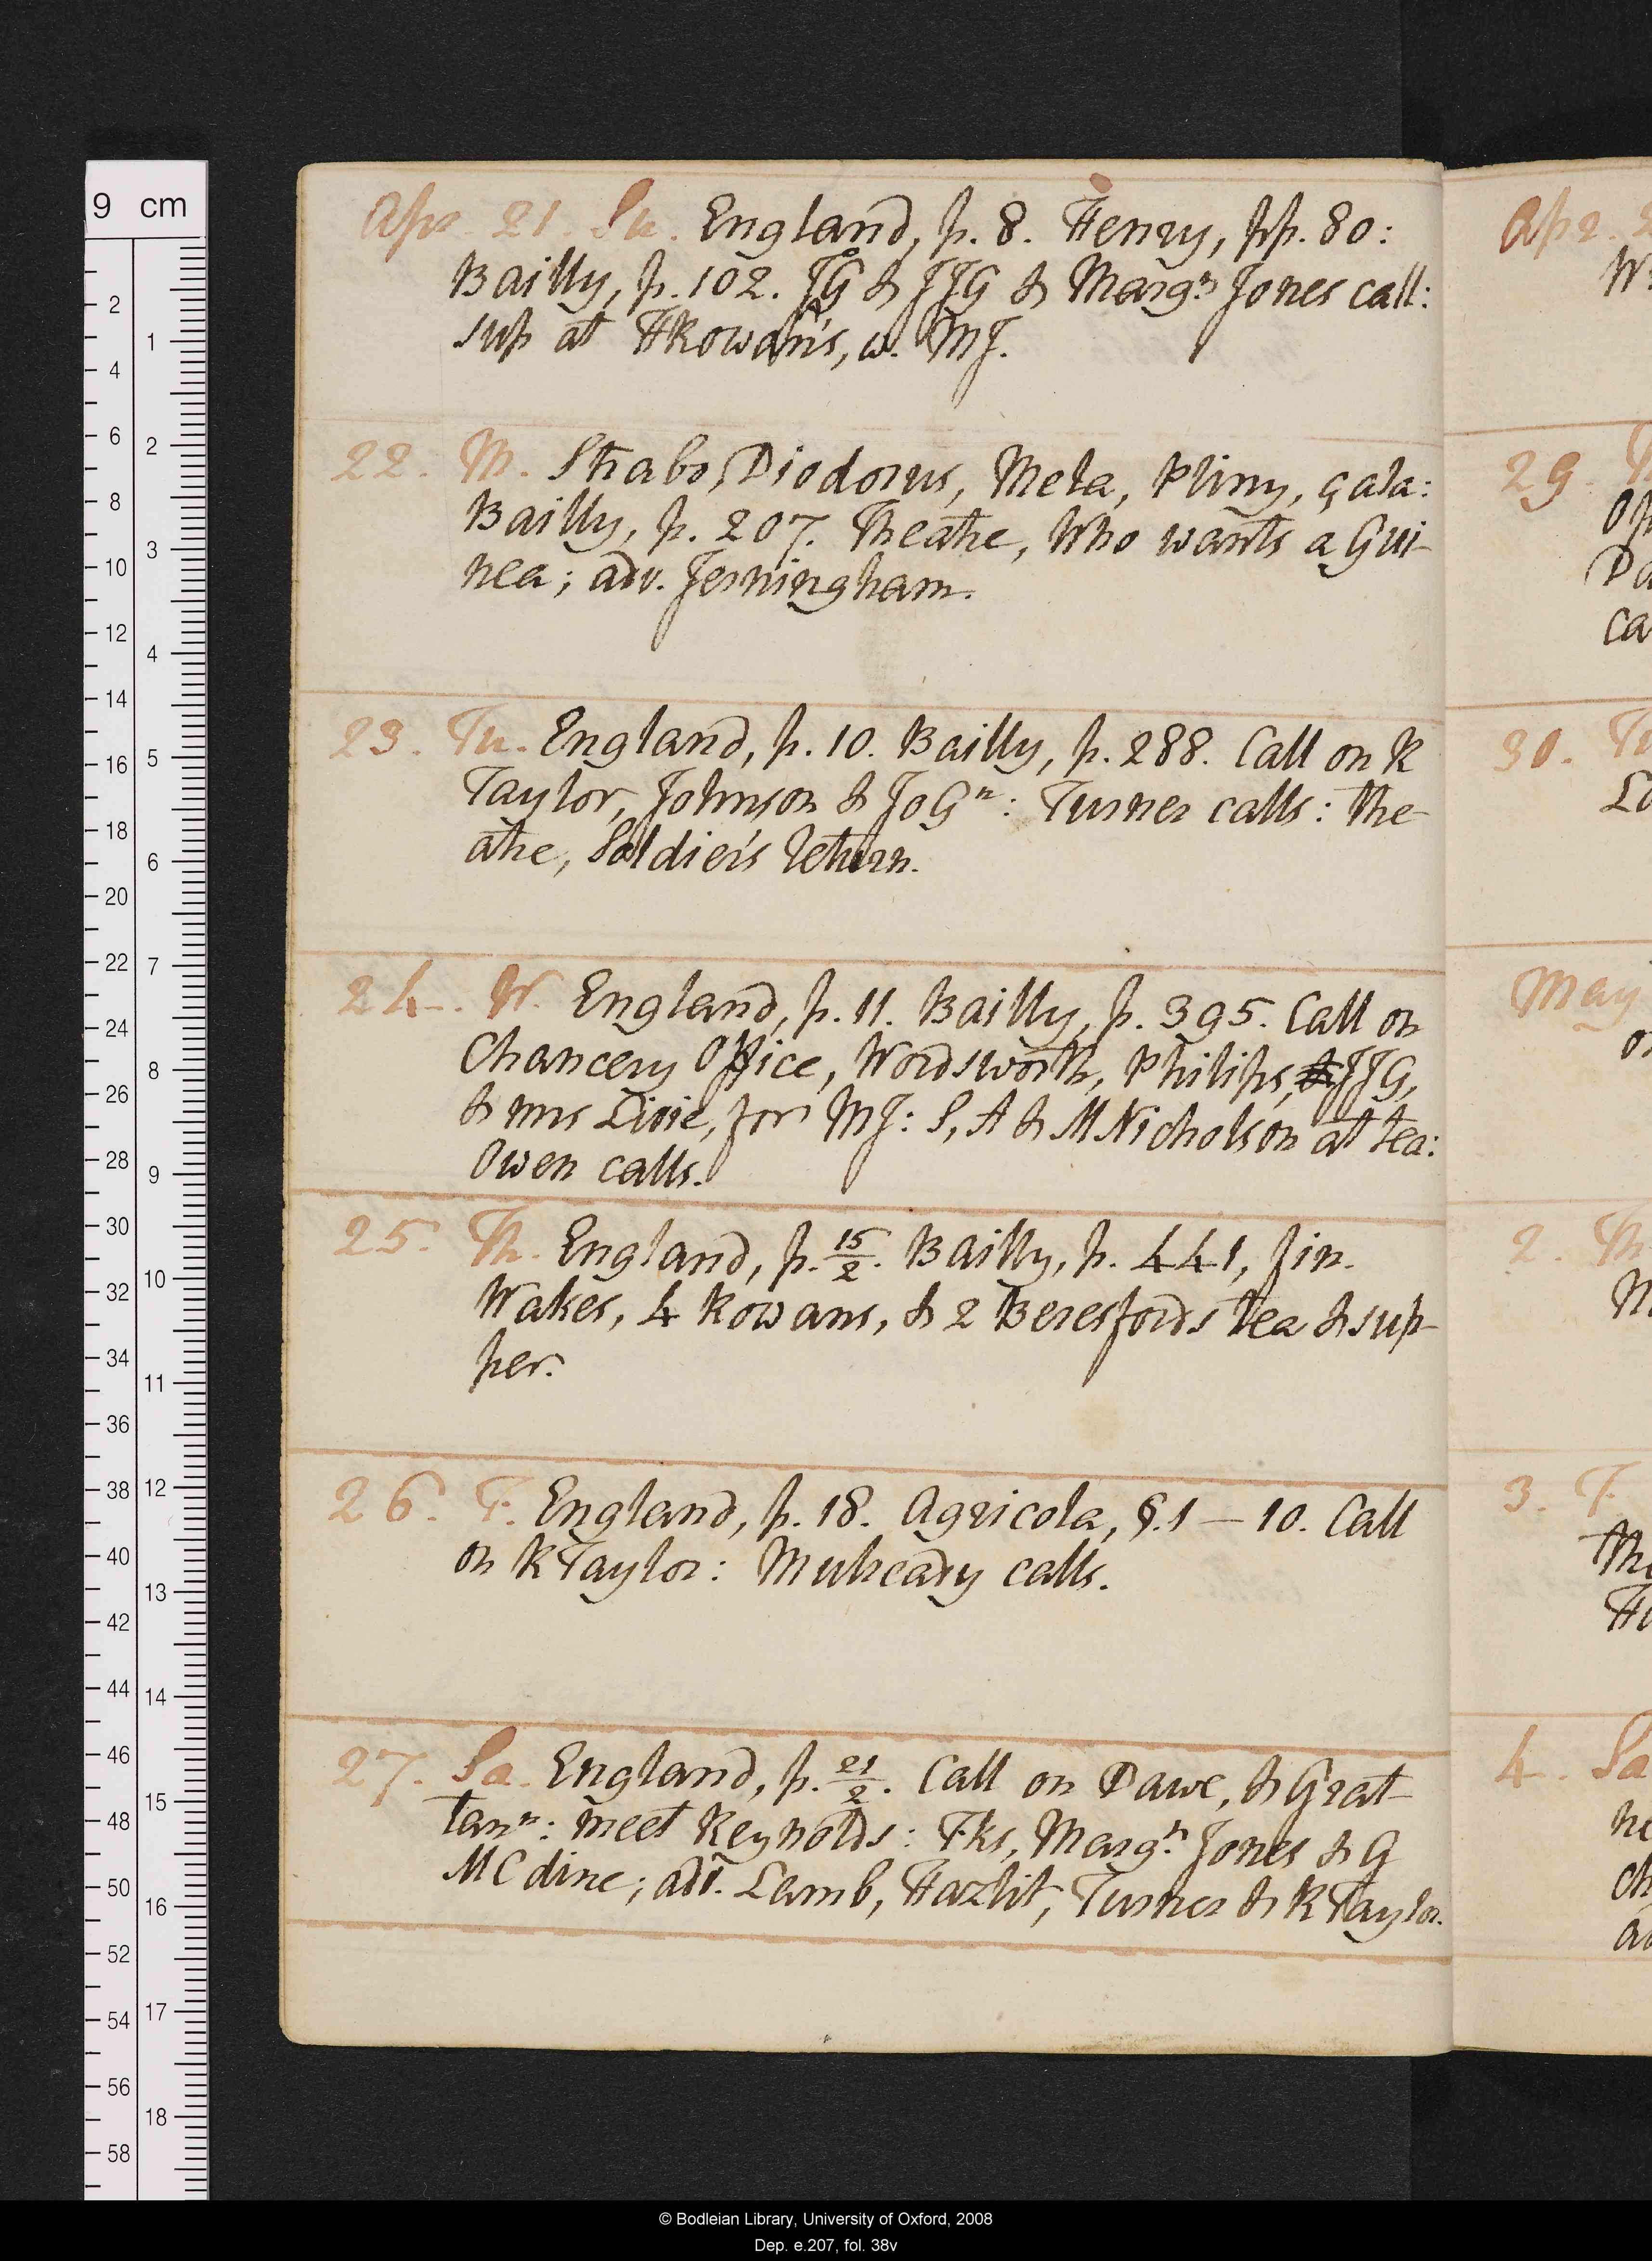 Apr. 21. Su. England, p. 8. Henry, pp. 80:
Bailly, p. 102. TG & JJG & Marg.n Jones call:
sup at HRowan's, w. MJ.
22. M. Strabo, Diodorus, Mela, Pliny, çala:
Bailly, p. 207. Theatre, Who wants a Gui-
nea; adv. Jerningham.
23. Tu. England, p. 10. Bailly, p. 288. Call on R
Taylor, Johnson & JoGn: Turner calls: The-
atre, Soldier's Return.
24. W. England, p. 11. Bailly, p. 395. Call on
Chancery Office, Wordsworth, Philips, & JJG,
& mrs Livie, for MJ: S, A & M Nicholson at tea:
Owen calls.
25. Th. England, p. 15/2. Bailly, p. 441, fin.
Wakes, 4 Rowans, & 2 Beresfords tea & sup-
per.
26. F. England, p. 18. Agricola, §. 1 — 10. Call
on R Taylor: Mulready calls.
27. Sa. England, p. 21/2. Call on Dawe, & Grat-
tann: meet Reynolds: Fks, Marg.n Jones & G
MC dine; adv. Lamb, Hazlit, Turner & R Taylor.
Apr. 2
29.
30. Tu
May
2. Th
3. F.
4. Sa
9 cm
2
4
6
8
10
12
14
16
18
20
22
24
26
28
30
32
34
36
38
40
42
44
46
48
50
52
54
56
58
1
2
3
4
5
6
7
8
9
10
11
12
13
14
15
16
17
18
© Bodleian Library, University of Oxford, 2008
Dep. e.207, fol. 38v